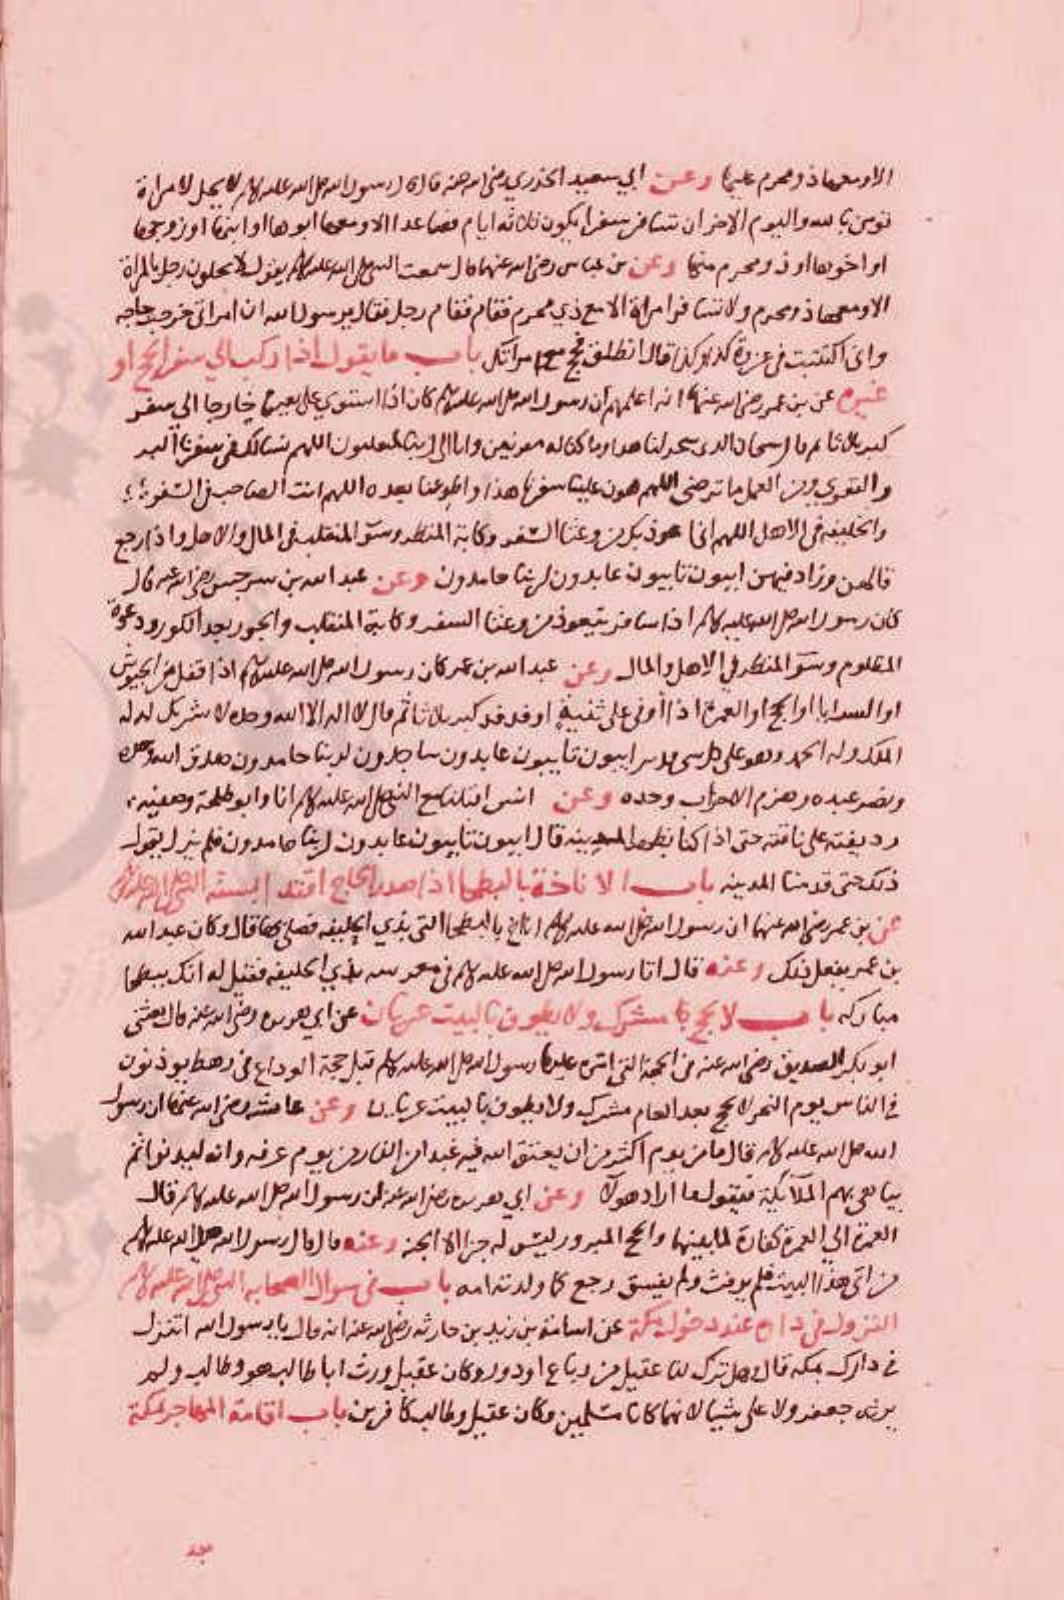 الا ومعها ذو محرم عليها وعن ابي سعيد الخدري رضي الله عنه قال قال رسول الله صلى الله عليه وسلم لا يحل لامراة
تومن بالله واليوم الاخر ان تسافر سفرا يكون ثلاثه ايام فصاعدا الا ومعها ابوها او ابنها او زوجها
او اخوها او ذو محرم منها وعن بن عباس رضي الله عنهما قال سمعت النبي صلى الله عليه وسلم يقول لا يخلون رجل بامراة
الا ومعها ذو محرم ولا تسافر امراة الا مع ذي محرم فقام فقام رجل فقال يرسول الله ان امراتي خرجت حاجه
واني اكتتبت في غزوة كذا وكذا قال انطلق فحج مع امراتك باب ما يقول اذا ركب الي سفر الحج او
غيره عن بن عمر رضي الله عنهما انه اعلمهم ان رسول الله صلى الله عليه وسلم كان اذا استوي علي بعيره خارجا الي سفر
كبر ثلاثا ثم قال سبحان الذي سخر لنا هذا وما كنا له مقرنين وانا الي ربنا لمنقلبون اللهم نسالك في سفرنا البر
والتقوي ومن العمل ما ترضي اللهم هون علينا سفرنا هذا واطو عنا بعده اللهم انت الصاحب في السفر
والخليفه في الاهل اللهم اني اعوذ بك من وعثا السفر وكابة المنظر وسو المنقلب في المال والاهل واذا رجع
قالهن وزاد فيهن ايبون تايبون عابدون لربنا حامدون وعن عبد الله بن سرجس رضي الله عنه قال
كان رسول الله صلى الله عليه وسلم اذا سافر يتعوذ من وعثا السفر وكابة المنقلب والحور بعد الكور ودعوة
المظلوم وسو المنظر في الاهل والمال وعن عبد الله بن عمر كان رسول الله صلى الله عليه وسلم اذا قفل من الجيوش
او السرايا او الحج او العمرة اذا اوفى على ثنية او فدفد كبر ثلاثا ثم قال لا اله الا الله وحده لا شريك له له
الملك وله الحمد وهو على كل شي قدير ايبون تايبون عابدون ساجدون لربنا حامدون صدق الله وعده
ونصر عبده وهزم الاحزاب وحده وعن انس اقبلنا مع النبي صلى الله عليه وسلم انا وابو طلحة وصفيه
رديفته على ناقته حتى اذا كنا بظهر المدينه قال ايبون تايبون عابدون لربنا حامدون فلم يزل يقول
ذلك حتى قدمنا المدينه باب الاناخة بالبطحا اذا صدر الحاج اقتدا بسنة النبي صلى الله عليه وسلم
عن بن عمر رضي الله عنهما ان رسول الله صلى الله عليه وسلم اناخ بالبطحا التي بذي الحليفه فصلى بها قال وكان عبد الله
بن عمر يفعل ذلك وعنه قال اتا رسول الله صلى الله عليه وسلم في معرسه بذي الحليفه فقيل له انك ببطحا
مباركه باب لا يحج بنا مشرك ولا يطوف بالبيت عريان عن ابي هريره رضي الله عنه قال بعثني
ابو بكر الصديق رضي الله عنه في الحجة التي امره عليها رسول الله صلى الله عليه وسلم قبل حجة الوداع في رهط يوذنون
في الناس يوم النحر لا يحج بعد العام مشرك ولا يطوف بالبيت عريان وعن عائشه رضي الله عنها ان رسول
الله صلى الله عليه وسلم قال ما من يوم اكثر من ان يعتق الله فيه عبدا من النار من يوم عرفه وانه ليدنوا ثم
يباهي بهم الملائكة فيقول ما اراد هولا وعن ابي هريره رضي الله عنه ان رسول الله صلى الله عليه وسلم قال
العمرة الي العمرة كفارة لما بينهما والحج المبرور ليس له جزا الا الجنه وعنه قال قال رسول الله صلى الله عليه وسلم
من اتى هذا البيت فلم يرفث ولم يفسق رجع كما ولدته امه باب في سوال الصحابه النبي صلى الله عليه وسلم
النزول في داره عند دخول مكة عن اسامة بن زيد بن حارثه رضي الله عنه انه قال يا رسول الله اتنزل
في دارك بمكه قال وهل ترك لنا عقيل من رباع او دور وكان عقيل ورث ابا طالب هو وطالب ولم
يرثه جعفر ولا علي شيا لانهما كانا مسلمين وكان عقيل وطالب كافرين باب اقامة المهاجر بمكة